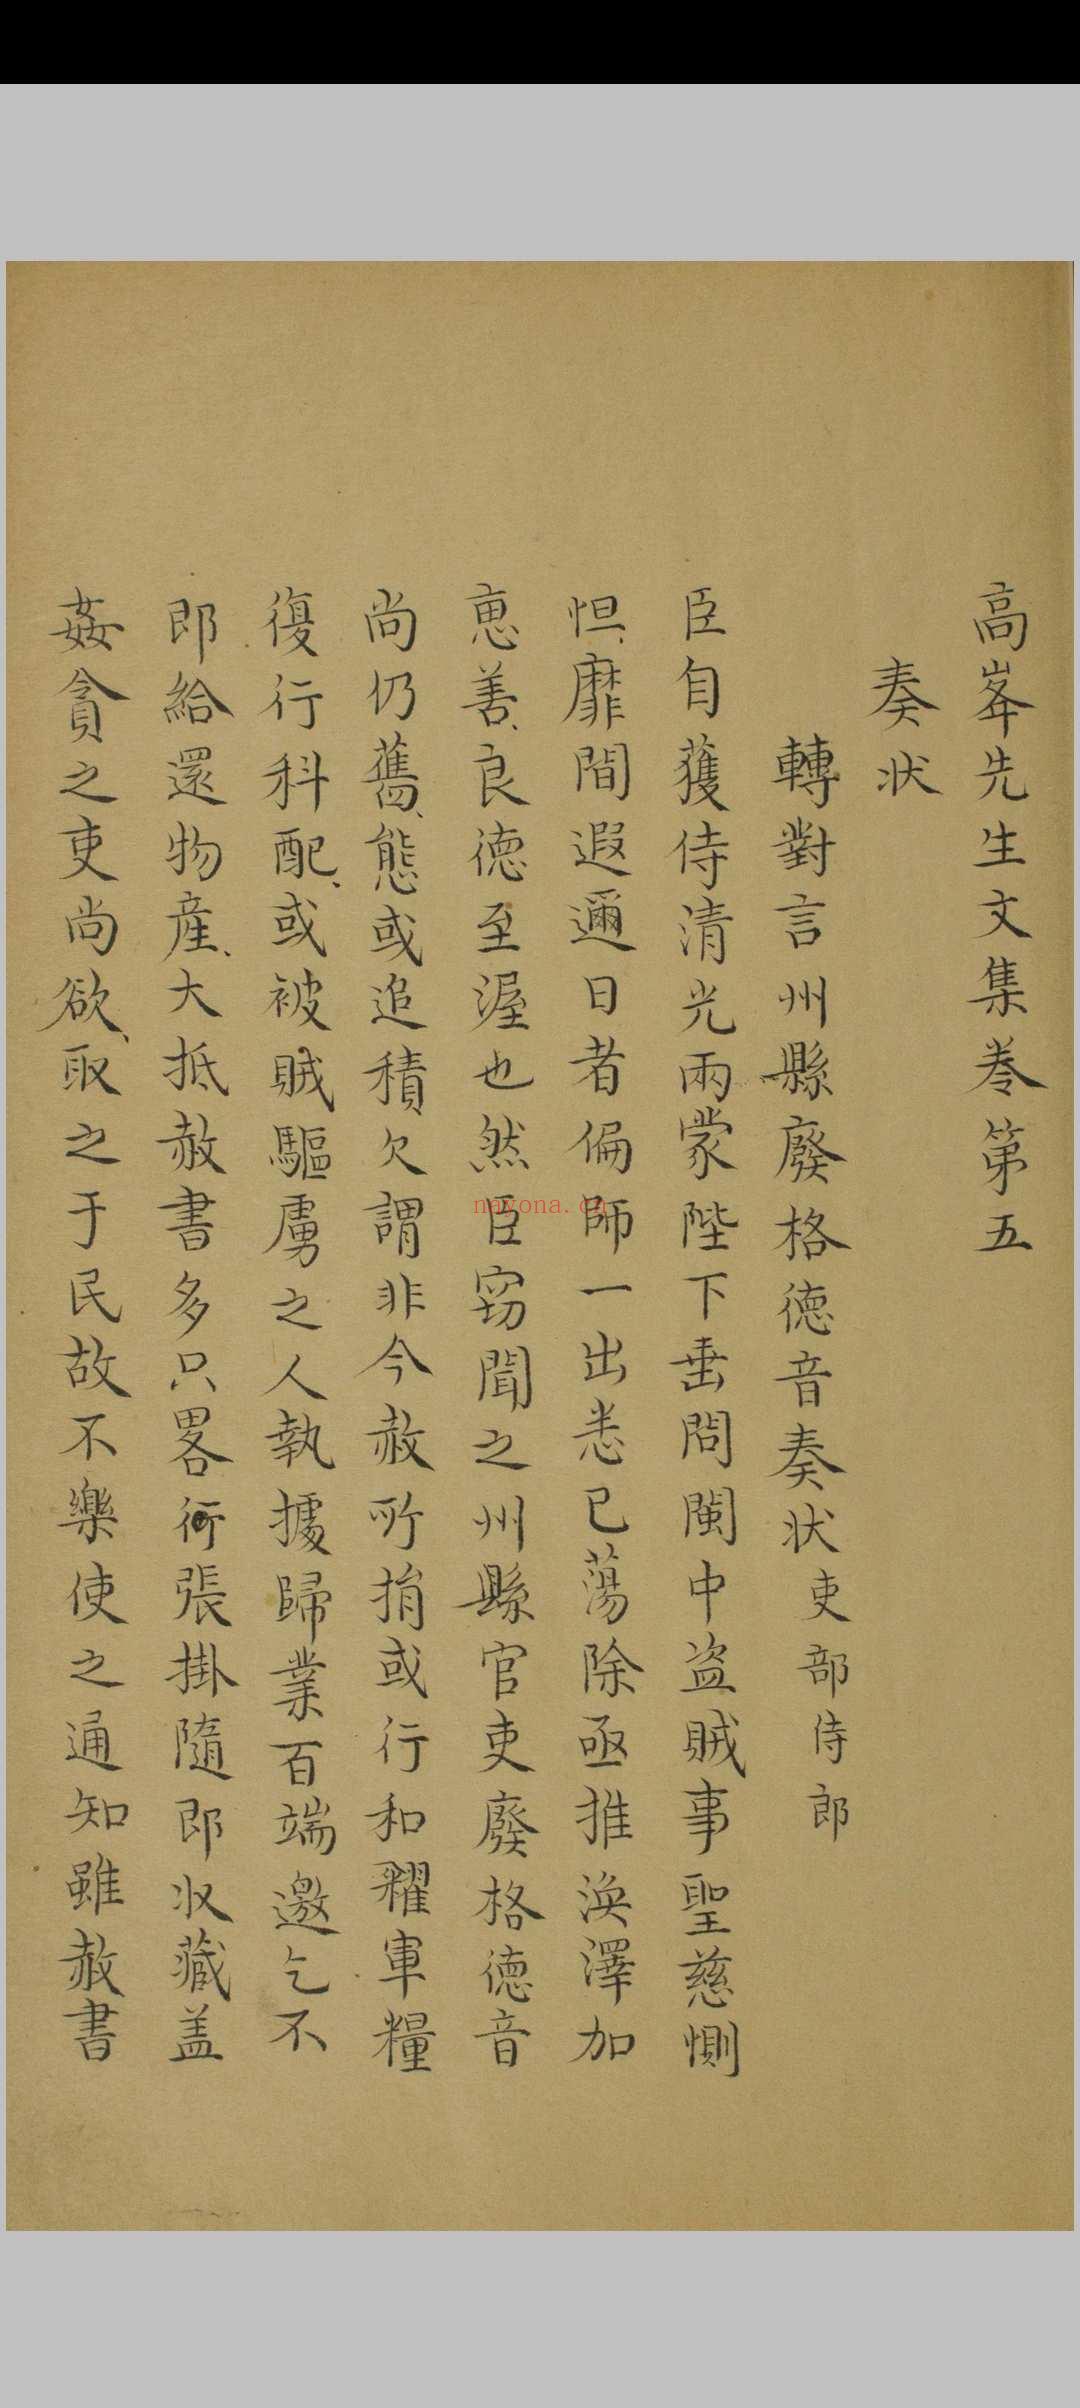 高峯先生文集卷第五
奏状
轉對言州縣廢格德音奏状吏部侍郎
臣自獲侍清光兩蒙陛下垂問閩中盗賊事聖慈惻
怛靡間遐邇日者偏師一出悉已蕩除亟推渙澤加
恵善良德至渥也然臣窃聞之州縣官吏廢格德音
尚仍舊態或追積欠謂非今赦所捐或行和糴軍糧
復行科配或被賊驅虜之人執據歸業百端邀乞不
即給還物産大抵赦書多只畧行張掛隨即収藏盖
姦貪之吏尚欲取之于民故不樂使之通知雖赦書
nayona.cn